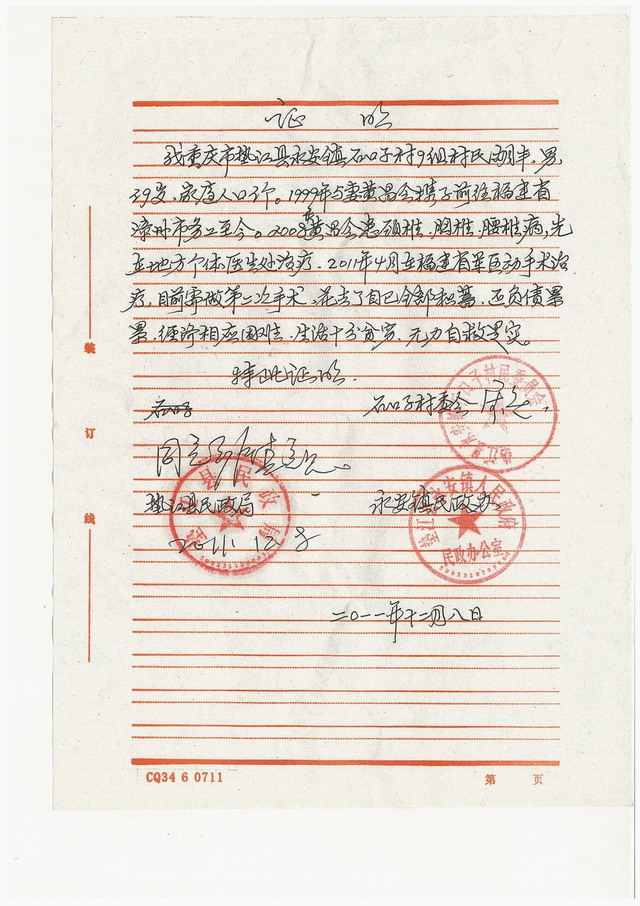 证 明
我重庆市垫江县永安镇石口子村9组村民胡丰,男,
39岁,家庭人口3个。1999年与妻黄昌会携子前往福建省
漳州市务工至今。2008年黄昌会患颈椎、胸椎、腰椎病,先
在地方个体医生处治疗,2011年4月在福建省某医动手术治
疗,目前需做第二次手术,花去了自己全部积蓄,还负债累
累,经济相应困难,生活十分贫穷,无力自救是实。
特此证明
石口子村委会
垫江县民政局
永安镇民政办
11.12.8
二〇一一年十二月八日
民政办公室
装
订
线
CQ34 6 0711
第 页